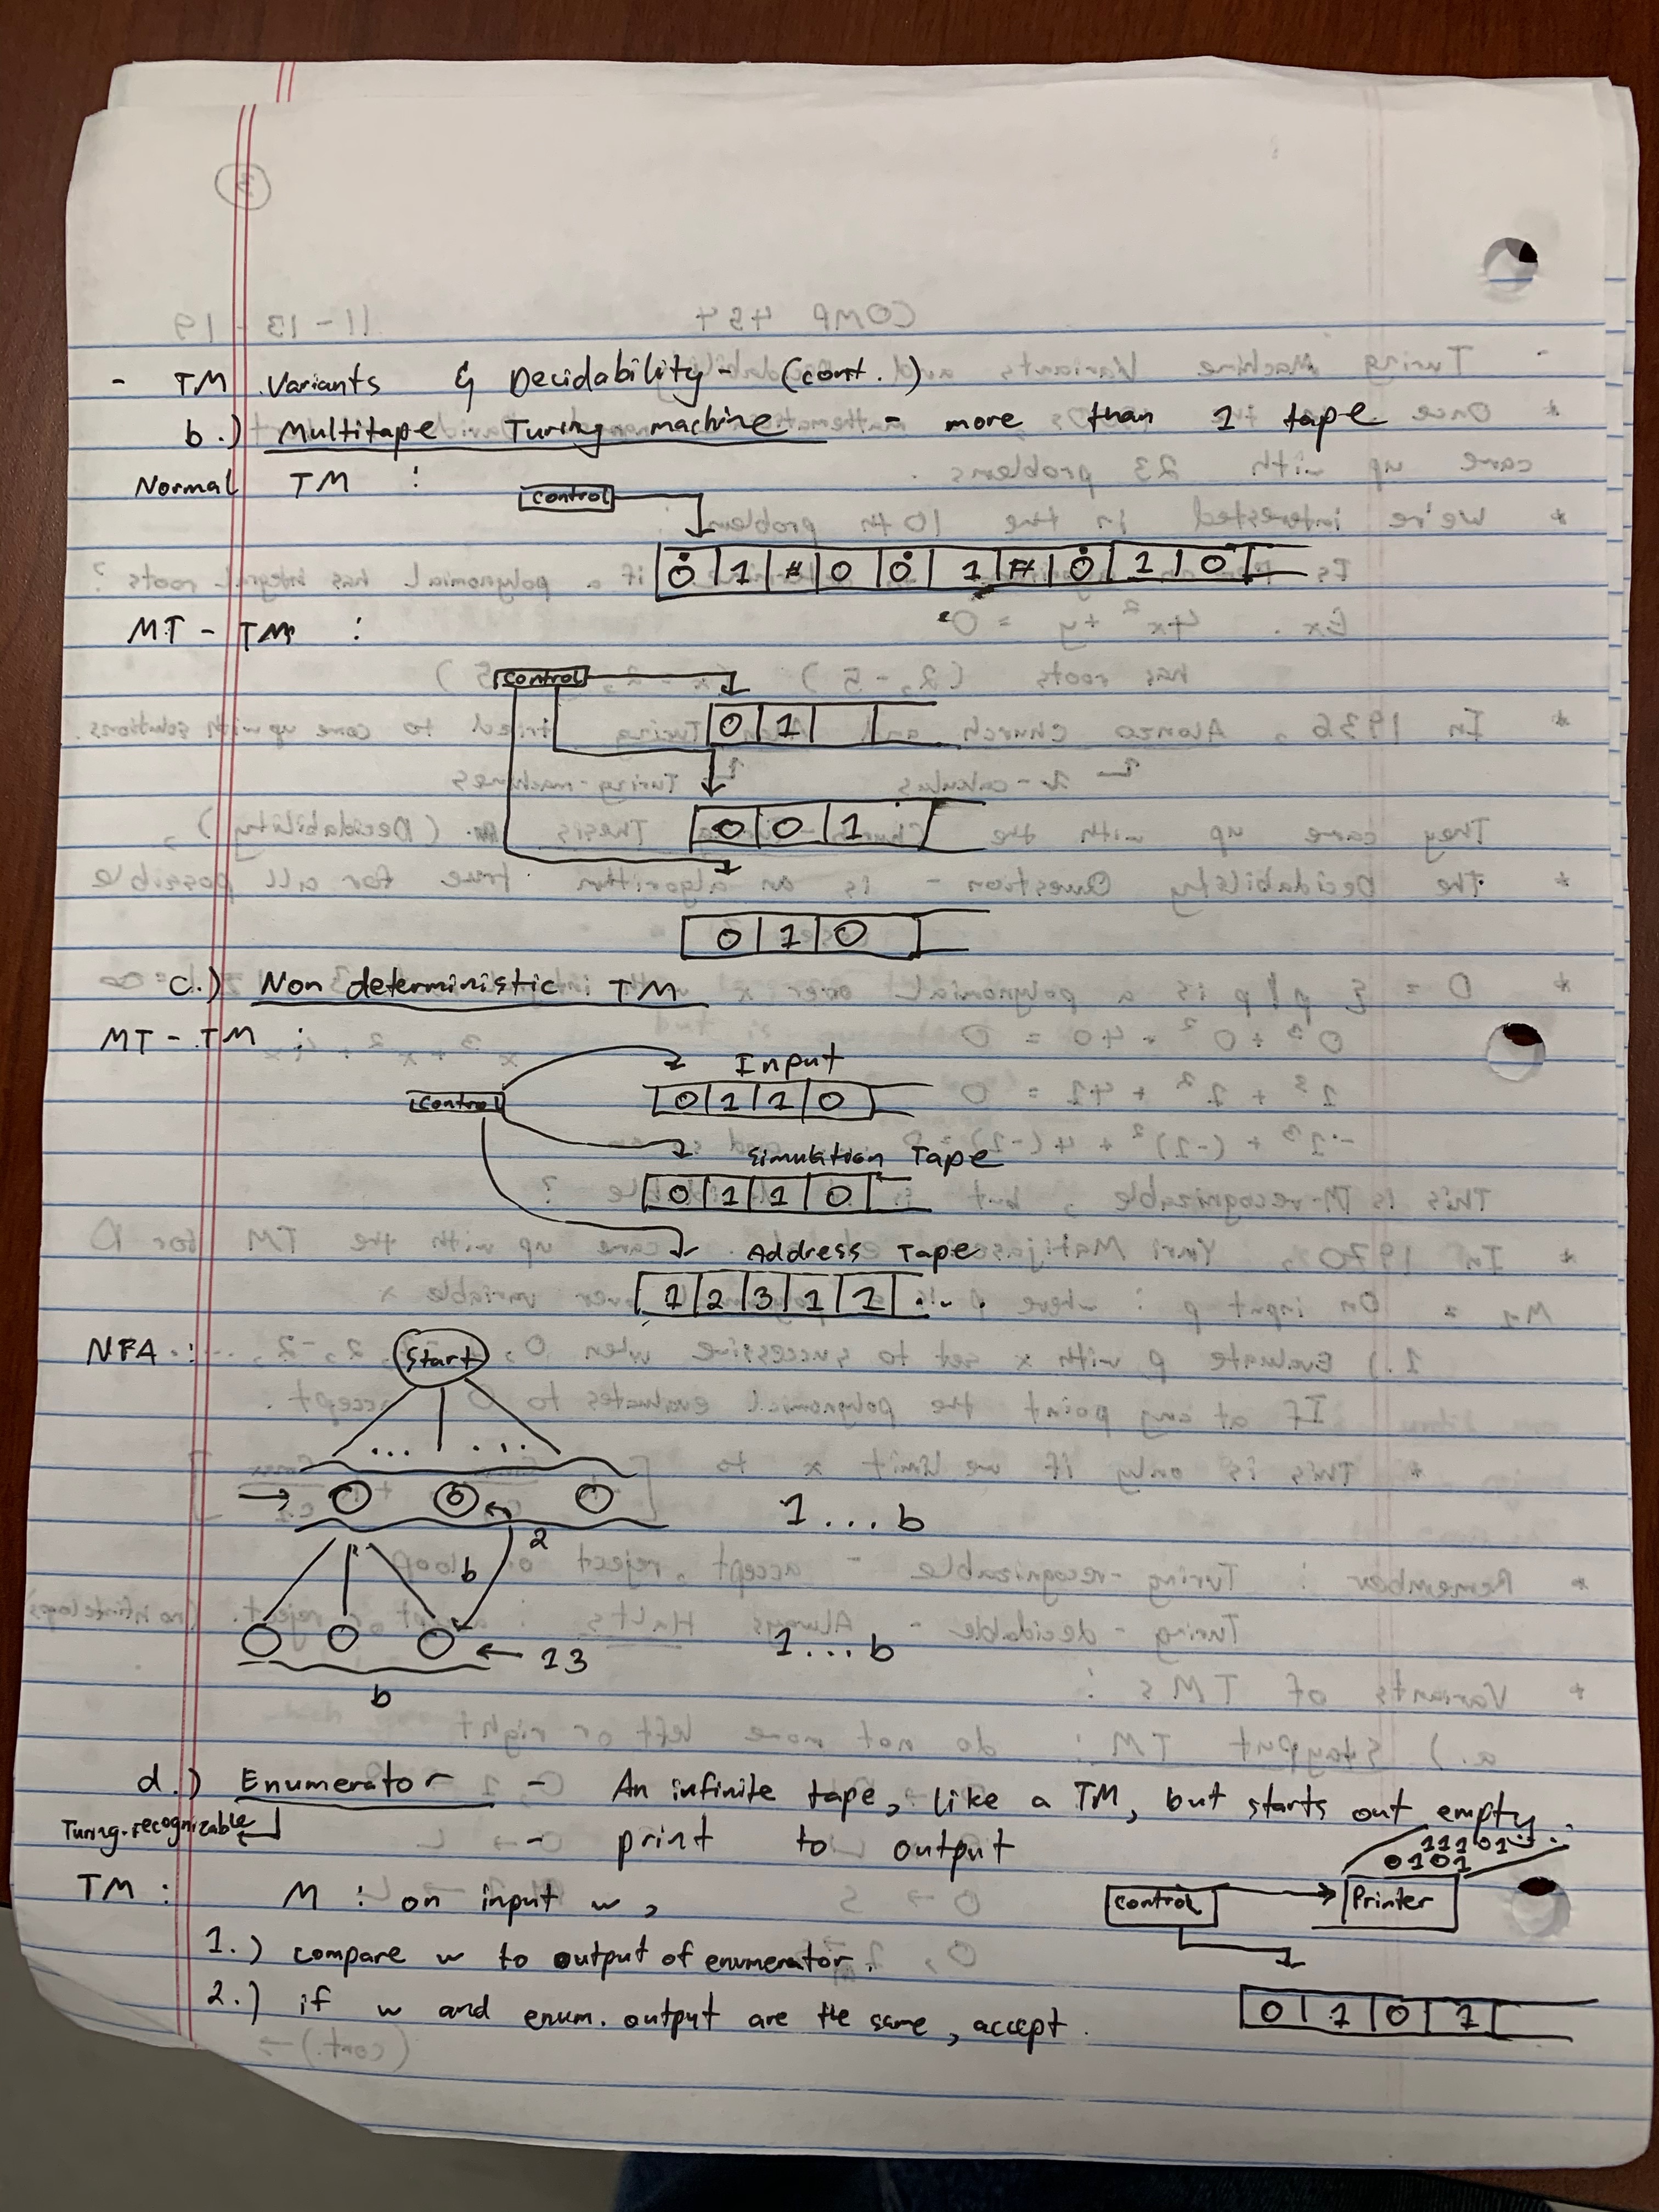 - TM Variants & Decidability - (cont.)
b.) Multitape Turing machine - more than 1 tape
Normal TM :
control
0 1 # 0 0 1 # 0 1 0
MT - TM :
control
0 1
0 0 1
0 1 0
c.) Non deterministic TM
MT - TM :
Input
control
0 1 1 0
Simulation Tape
0 1 1 0
Address Tape
1 2 3 1 1 ...
NFA :
Start
... ...
1...b
2
b
13
1...b
b
d.) Enumerator - An infinite tape, like a TM, but starts out empty.
Turing-recognizable
- print to output
11101...
0101
TM : M : on input w,
control
Printer
1.) compare w to output of enumerator.
2.) if w and enum. output are the same, accept.
0 1 0 1